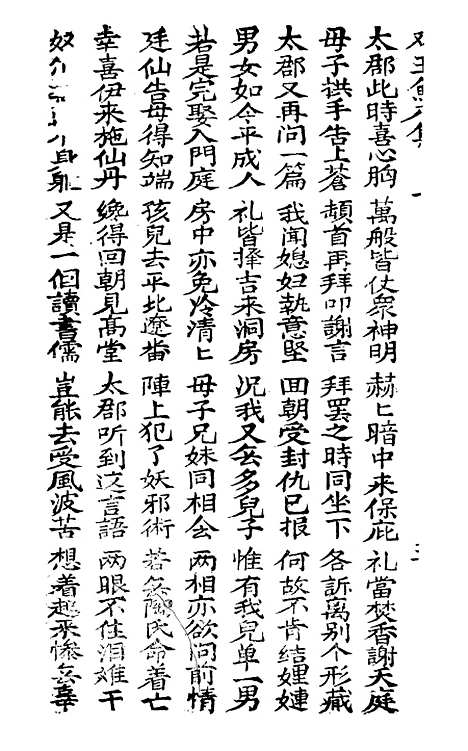 太郡此時喜心胸 萬般皆仗衆神明 赫〻暗中來保庇 礼當焚香謝天庭
母子拱手告上蒼 頡首再拜叩謝言 拜罢之時同坐下 各訴离别个形藏
太郡又再问一篇 我闻媳妇執意堅 回朝受封仇已报 何故不肯结娌嗹
男女如今平成人 礼皆擇吉来洞房 况我又無多兒子 惟有我兒单一男
若是完娶入門庭 房中亦免冷清〻 母子兄妹同相会 两相亦欲问前情
廷仙告母得知端 孩兒去平北遼畨 陣上犯了妖邪術 若無 氏命着亡
幸喜伊来施仙丹 纔得回朝見高堂 太郡听到这言語 两眼不住泪难干
奴 身 又是一個讀書儒 豈能去受風波苦 想着起来惨無辜